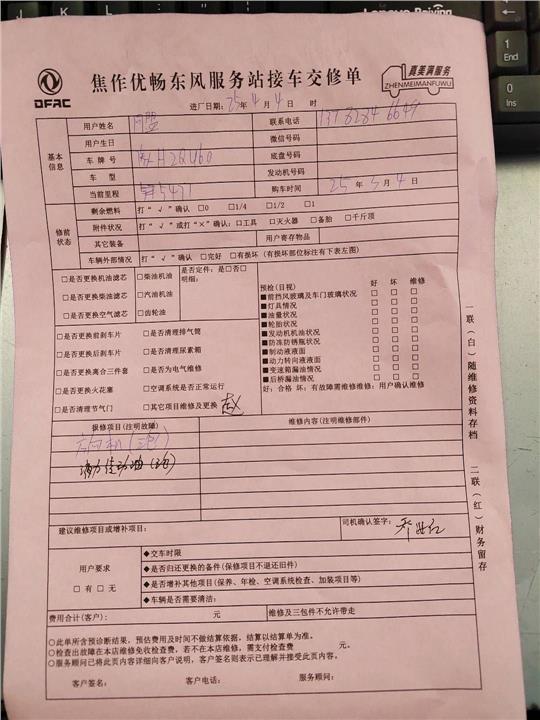 J K L
Lenovo Beiying
1
End
0
Ins
DFAC
焦作优畅东风服务站接车交修单
真美满服务
ZHENMEIMANFUWU
进厂日期：25年4月4日 时
基本信息
用户姓名
联系电话 137 8284 6649
用户生日
微信号码
车牌号
底盘号码
车型
发动机号码
当前里程
购车时间 25年3月4日
修前状态
剩余燃料 打“√”确认 □0 □1/4 □1/2 □1
附件状况 打“√”或打“×”确认：□工具 □灭火器 □备胎 □千斤顶
其它装备
用户寄存物品
车辆外部情况 打“√”确认 □完好 □有损坏（有损坏部位标注有下表左图）
□是否更换机油滤芯
□是否更换柴油滤芯
□是否更换空气滤芯
□柴油机油
□汽油机油
□齿轮油
是否定件：是□否□
明细：
□是否更换前刹车片
□是否更换后刹车片
□是否更换离合三件套
□是否更换火花塞
□是否清理节气门
□是否清理排气筒
□是否清理尿素箱
□是否为电气维修
□空调系统是否正常运行
□其它项目维修及更换 赵
预检（目视） 好 坏 维修
■前挡风玻璃及车门玻璃状况 □ □ □
■灯具情况 □ □ □
■油量状况 □ □ □
■轮胎状况 □ □ □
■发动机机油状况 □ □ □
■防冻防锈瓶状况 □ □ □
■制动液液面 □ □ □
■动力转向液液面 □ □ □
■变速箱漏油情况 □ □ □
■后桥漏油情况 □ □ □
好：合格 坏：有故障需维修维修：用户确认维修
报修项目（注明故障）
维修内容（注明维修部件）
方向机（三包）
建议维修项目或增补项目：
司机确认签字：
用户要求
□有 □无
◆交车时限
◆是否归还更换的备件（保修项目不退还旧件）
◆是否增补其他项目（保养、年检、空调系统检查、加装项目等）
◆车辆是否需要清洁：
费用合计（客户）： 元
维修及三包件不允许带走
○此单所含预诊断结果，预估费用及时间不做结算依据，结算以结算单为准。
○检查出故障在本店维修免收检查费，若不在本店维修，需支付检查费 元。
○服务顾问已将此页内容详细向客户说明，客户签名则表示已理解并接受此页内容。
客户签名： 客户电话： 服务顾问：
一联（白）随维修资料存档
二联（红）财务留存